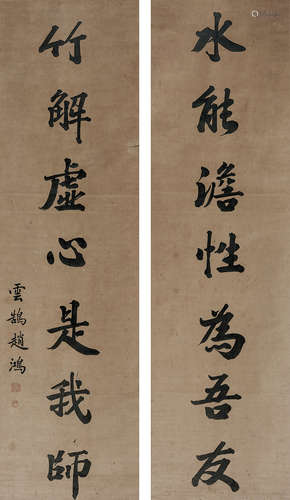 水能澹性為吾友
竹解虛心是我師
雲鵠趙鴻